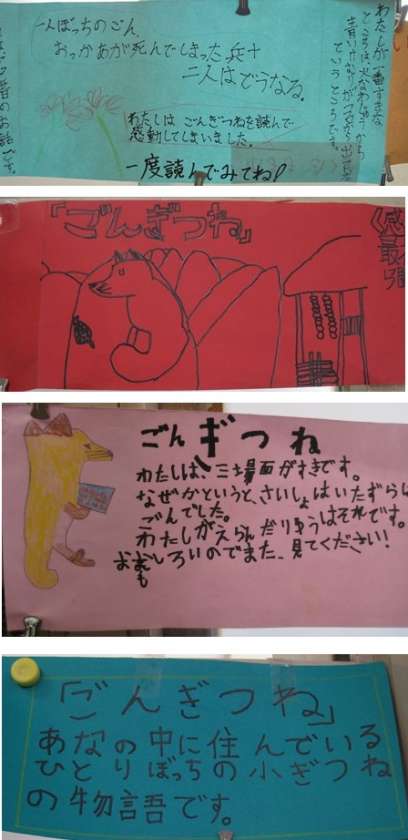 わたしが一番すきな
ところは火なわじゅうから
青いけむりが
というところです。
一人ぼっちのごん、
おっかあが死んでしまった兵十
二人はどうなる。
わたしは ごんぎつねを読んで
感動してしまいました。
一度読んでみてね
昔のお話です。
「ごんぎつね」
感
最
ごんギつね
わたしは、三場面がすきです。
なぜかというと、さいしょはいたずら
ごんでした。
わたしがえらんだりゆうはそれです。
おもしろいのでまた、見てください!
「ごんぎつね」
あなの中に住んでいる
ひとりぼっちの小ぎつね
の物語です。